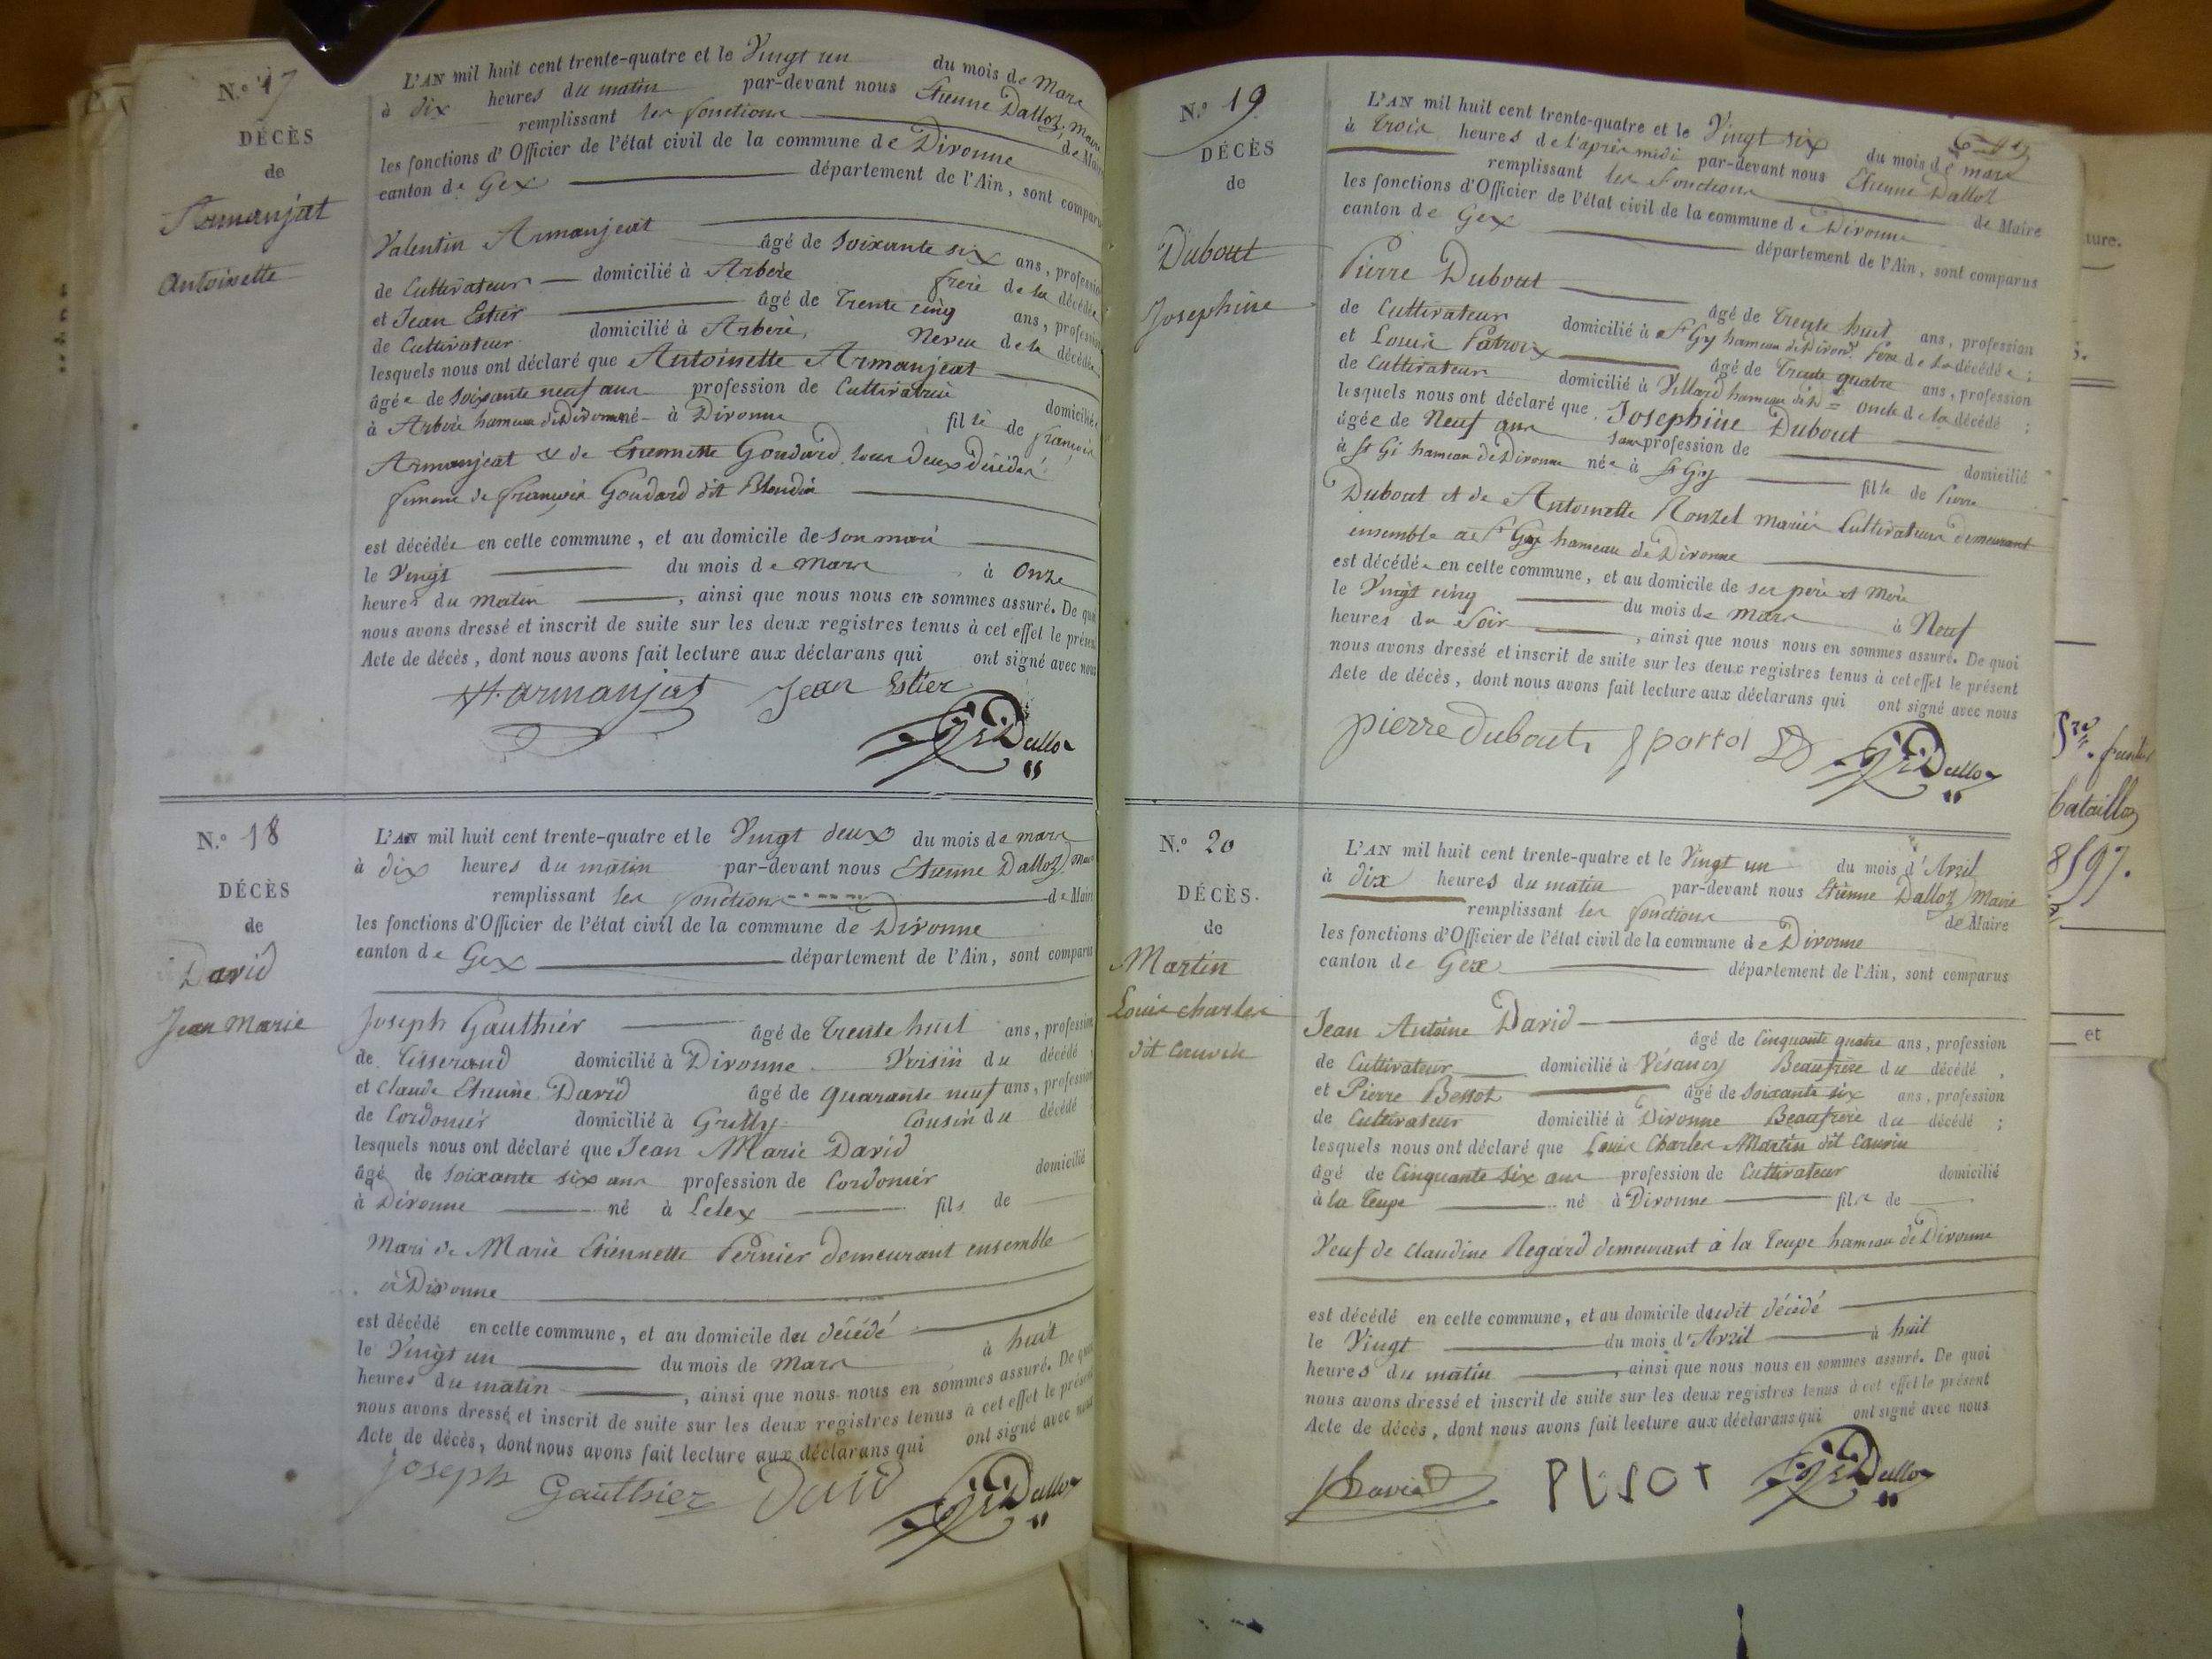 N.o 17
DÉCÈS
de
Armanjat
Antoinette
L'AN mil huit cent trente-quatre et le Vingt un du mois de Mars
à dix heures du matin par-devant nous Etienne Dalloz, Maire
remplissant les fonctions de Maire
les fonctions d'Officier de l'état civil de la commune de Divonne
canton de Gex département de l'Ain, sont comparus
Valentin Armanjeat âgé de soixante six ans, profession
de Cultivateur domicilié à Arbère frère de la décédée
et Jean Estier âgé de trente cinq ans, profession
de Cultivateur domicilié à Arberè, Neveu de la décédée
lesquels nous ont déclaré que Antoinette Armanjeat
âgée de soixante neuf ans profession de Cultivatrice domiciliée
à Arbère hameau de Divonne né à Divonne fille de françois
Armanjeat et de Etiennette Goudard tous deux décédés
femme de françois Goudard dit Blondin
est décédée en cette commune, et au domicile de son mari
le Vingt du mois de Mars à Onze
heures du matin, ainsi que nous nous en sommes assuré. De quoi
nous avons dressé et inscrit de suite sur les deux registres tenus à cet effet le présent
Acte de décès, dont nous avons fait lecture aux déclarans qui ont signé avec nous
V. armanjat Jean Estier Dalloz
N.o 18
DÉCÈS
de
David
Jean Marie
L'AN mil huit cent trente-quatre et le Vingt deux du mois de mars
à dix heures du matin par-devant nous Etienne Dalloz Maire
remplissant les fonctions de Maire
les fonctions d'Officier de l'état civil de la commune de Divonne
canton de Gex département de l'Ain, sont comparus
Joseph Gauthier âgé de trente huit ans, profession
de Tisserand domicilié à Divonne Voisin du décédé
et Claude Etienne David âgé de quarante neuf ans, profession
de Cordonier domicilié à Grilly Cousin du décédé
lesquels nous ont déclaré que Jean Marie David
âgé de soixante six ans profession de Cordonier domicilié
à Divonne né à Lelex fils de
Mari de Marie Etiennette Pernier demeurant ensemble
à Divonne
est décédé en cette commune, et au domicile du décédé
le Vingt un du mois de Mars à huit
heures du matin, ainsi que nous nous en sommes assuré. De quoi
nous avons dressé et inscrit de suite sur les deux registres tenus à cet effet le présent
Acte de décès, dont nous avons fait lecture aux déclarans qui ont signé avec nous
Joseph Gauthier David Dalloz
N.o 19
DÉCÈS
de
Dubout
Josephine
L'AN mil huit cent trente-quatre et le Vingt six du mois de mars
à trois heures de l'après midi par-devant nous Etienne Dalloz
remplissant les fonctions de Maire
les fonctions d'Officier de l'état civil de la commune de Divonne
canton de Gex département de l'Ain, sont comparus
Pierre Dubout âgé de trente huit ans, profession
de Cultivateur domicilié à St Gy hameau de Divone Père de la décédée;
et Louis Patroix âgé de trente quatre ans, profession
de Cultivateur domicilié à Villard hameau de D= oncle de la décédé;
lesquels nous ont déclaré que Josephine Dubout
âgée de Neuf ans sans profession de domicilié
à St Gi hameau de Divonne née à St Gy fille de Pierre
Dubout et de Antoinette Ronzel mariés Cultivateurs demeurant
ensemble à St Gy hameau de Divonne
est décédée en cette commune, et au domicile de ses père et Mère
le Vingt cinq du mois de Mars à Neuf
heures du Soir, ainsi que nous nous en sommes assuré. De quoi
nous avons dressé et inscrit de suite sur les deux registres tenus à cet effet le présent
Acte de décès, dont nous avons fait lecture aux déclarans qui ont signé avec nous
pierre dubout Dalloz
N.o 20
DÉCÈS.
de
Martin
Louis charles
dit Cauvin
L'AN mil huit cent trente-quatre et le Vingt un du mois d'Avril
à dix heures du matin par-devant nous Etienne Dalloz Maire
remplissant les fonctions de Maire
les fonctions d'Officier de l'état civil de la commune de Divonne
canton de Gex département de l'Ain, sont comparus
Jean Antoine David âgé de Cinquante quatre ans, profession
de Cultivateur domicilié à Vésancy Beaufrère du décédé,
et Pierre Bessot âgé de soixante six ans, profession
de Cultivateur domicilié à Divonne Beaufrère du décédé;
lesquels nous ont déclaré que Louis Charles Martin dit Cauvin
âgé de Cinquante six ans profession de Cultivateur domicilié
à la Teupe né à Divonne fils de
Veuf de Claudine Regard demeurant à la Teupe hameau de Divonne
est décédé en cette commune, et au domicile dudit décédé
le Vingt du mois d'Avril à huit
heures du matin, ainsi que nous nous en sommes assuré. De quoi
nous avons dressé et inscrit de suite sur les deux registres tenus à cet effet le présent
Acte de décès, dont nous avons fait lecture aux déclarans qui ont signé avec nous
David Dalloz
ture.
bataillon
8597.
et